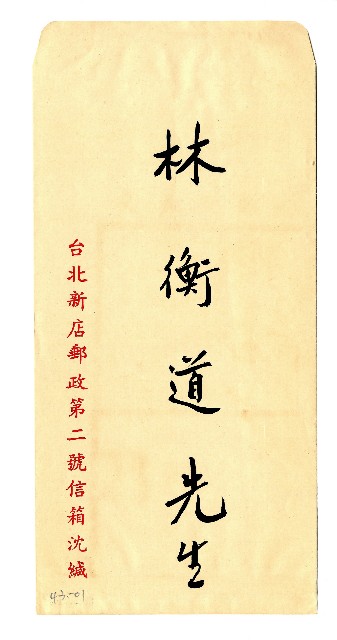 林衡道先生
台北新店郵政第二號信箱沈緘
43-01